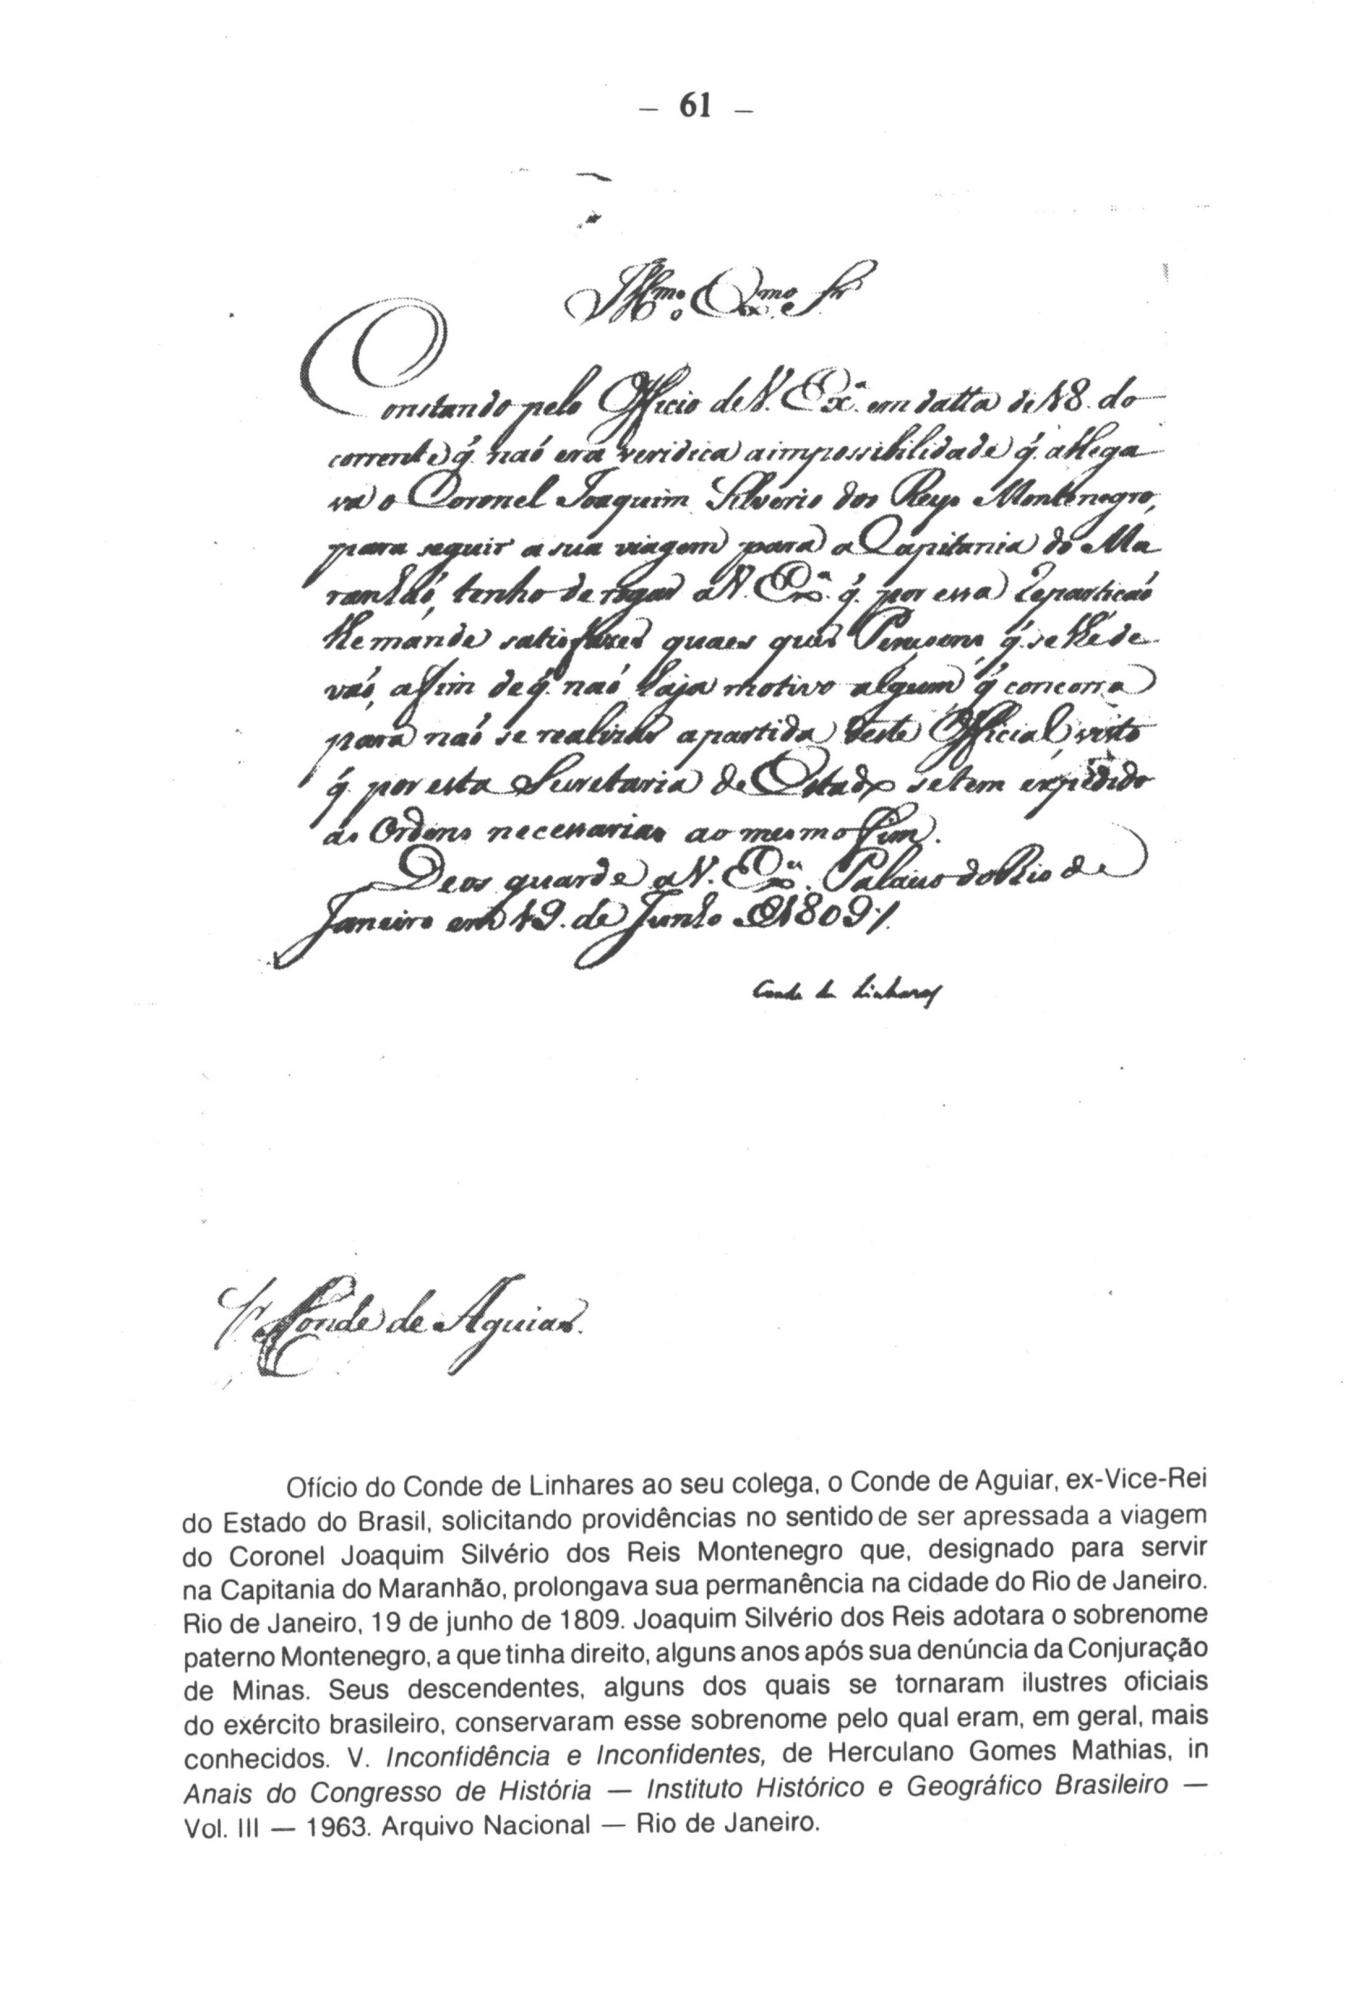 – 61 –
Illmo. e Exmo. Sr.
Constando pelo Officio de V. Exa. em datta de 18. do
corrente q. naõ era veridica a impossibilidade q. allega
va o Coronel Joaquim Silverio dos Reys Montenegro,
para seguir a sua viagem para a Capitania do Ma
ranhaõ, tenho de rogar a V. Exa. q. por essa Repartiçaõ
lhe mande satisfazer quaes quer q. se lhe de
vaõ, afsim de q. naõ haja motivo algum q. concorra
para naõ se realizar a partida deste Official visto
q. por esta Secretaria de Estado se tem expedido
as Ordens necessarias ao mesmo fim.
Deos guarde a V. Exa. Palacio do Rio de
Janeiro em 19. de Junho de 1809./.
Conde de Linhares
Sr. Conde de Aguiar.
Ofício do Conde de Linhares ao seu colega, o Conde de Aguiar, ex-Vice-Rei
do Estado do Brasil, solicitando providências no sentido de ser apressada a viagem
do Coronel Joaquim Silvério dos Reis Montenegro que, designado para servir
na Capitania do Maranhão, prolongava sua permanência na cidade do Rio de Janeiro.
Rio de Janeiro, 19 de junho de 1809. Joaquim Silvério dos Reis adotara o sobrenome
paterno Montenegro, a que tinha direito, alguns anos após sua denúncia da Conjuração
de Minas. Seus descendentes, alguns dos quais se tornaram ilustres oficiais
do exército brasileiro, conservaram esse sobrenome pelo qual eram, em geral, mais
conhecidos. V. Inconfidência e Inconfidentes, de Herculano Gomes Mathias, in
Anais do Congresso de História — Instituto Histórico e Geográfico Brasileiro —
Vol. III — 1963. Arquivo Nacional — Rio de Janeiro.